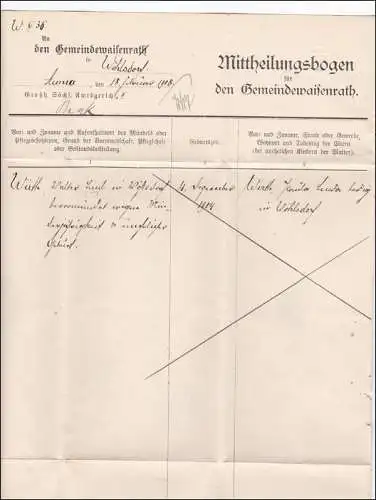 W 36
An
den Gemeindewaisenrath
in Wöhlsdorf
Auma, den 18. Februar 1908
Großh. Sächs. Amtsgericht
Mittheilungsbogen
für
den Gemeindewaisenrath.
Vor- und Zuname und Aufenthaltsort des Mündels oder
Pflegebefohlenen, Grund der Vormundschaft, Pflegschaft
oder Beistandsbestellung.
Geburtszeit.
Vor- und Zuname, Stand oder Gewerbe,
Wohnort und Todestag der Eltern
(bei unehelichen Kindern der Mutter).
1
2
3
Wirth Walter in Wöhlsdorf
bevormundet wegen Min-
derjährigkeit u. unehelicher
Geburt.
4. Dezember
Wirth
in Wöhlsdorf